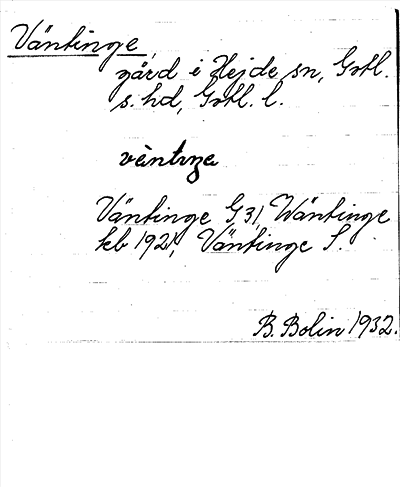 Väntinge,
gård i Hejde sn, Gotl.
s. hd, Gotl. l.
vä̀ntıŋe
Väntinge G 31, Wäntinge
kb 1921, Väntinge S.
B. Bolin 1932.